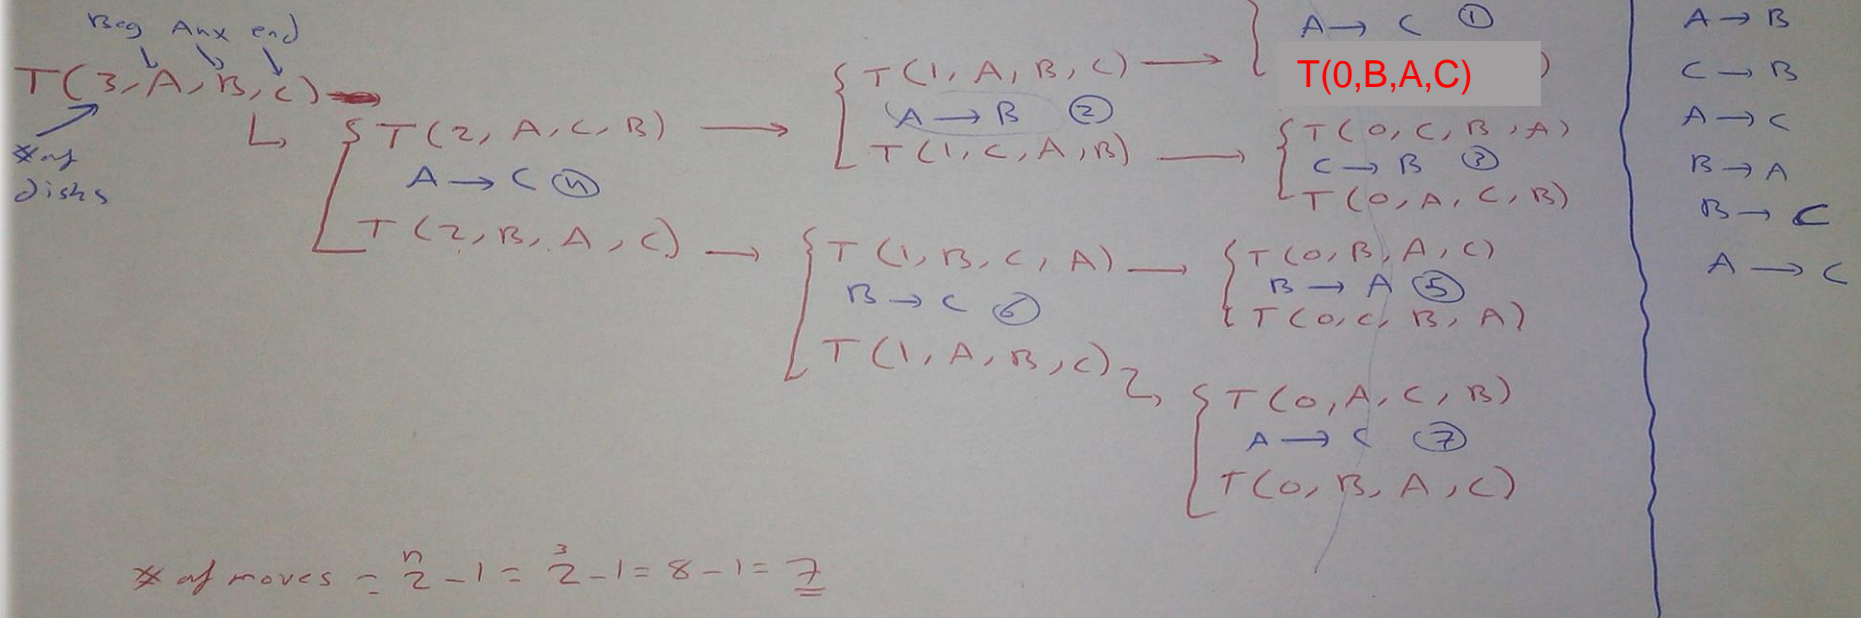 Beg Aux end
T(3, A, B, C)
# of disks
T(2, A, C, B)
A → C ④
T(2, B, A, C)
T(1, A, B, C)
A → B ②
T(1, C, A, B)
A → C ①
T(0,B,A,C)
T(0, C, B, A)
C → B ③
T(0, A, C, B)
T(1, B, C, A)
B → C ⑥
T(1, A, B, C)
T(0, B, A, C)
B → A ⑤
T(0, C, B, A)
T(0, A, C, B)
A → C ⑦
T(0, B, A, C)
# of moves = 2^n - 1 = 2^3 - 1 = 8 - 1 = 7
A → B
C → B
A → C
B → A
B → C
A → C